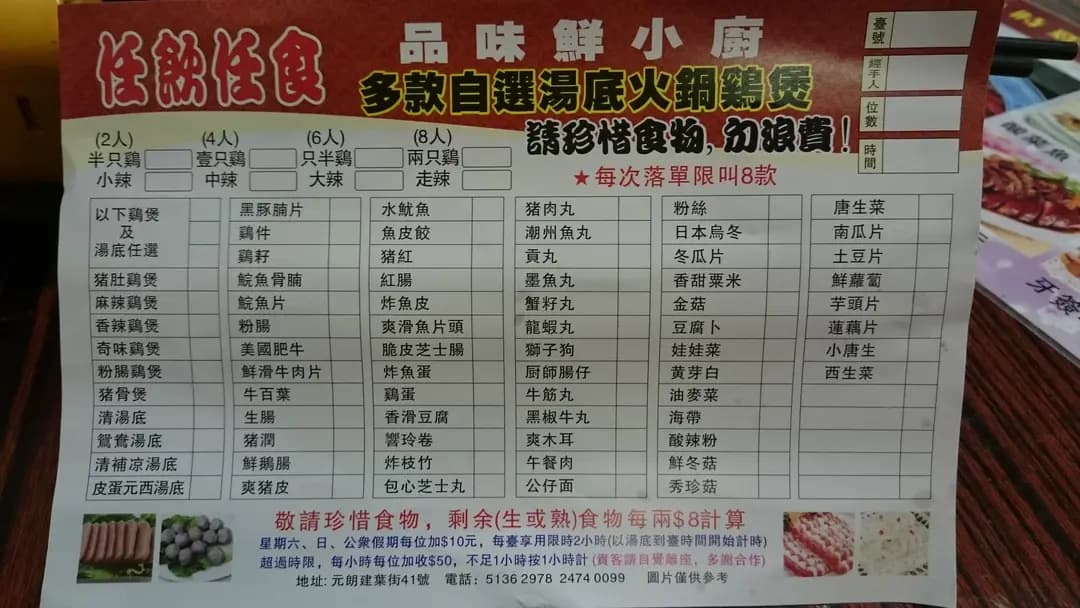 任飲任食
品味鮮小廚
多款自選湯底火鍋鷄煲
請珍惜食物，勿浪費！
臺號
經手人
位數
時間
(2人) (4人) (6人) (8人)
半只鷄 壹只鷄 只半鷄 兩只鷄
小辣 中辣 大辣 走辣
★每次落單限叫8款
以下鷄煲
及
湯底任選
猪肚鷄煲
麻辣鷄煲
香辣鷄煲
奇味鷄煲
粉腸鷄煲
猪骨煲
清湯底
鴛鴦湯底
清補凉湯底
皮蛋元西湯底
黑豚腩片
鷄件
鷄籽
鯇魚骨腩
鯇魚片
粉腸
美國肥牛
鮮滑牛肉片
牛百葉
生腸
猪潤
鮮鵝腸
爽猪皮
水魷魚
魚皮餃
猪紅
紅腸
炸魚皮
爽滑魚片頭
脆皮芝士腸
炸魚蛋
鷄蛋
香滑豆腐
響玲卷
炸枝竹
包心芝士丸
猪肉丸
潮州魚丸
貢丸
墨魚丸
蟹籽丸
龍蝦丸
獅子狗
厨師腸仔
牛筋丸
黑椒牛丸
爽木耳
午餐肉
公仔面
粉絲
日本烏冬
冬瓜片
香甜粟米
金菇
豆腐卜
娃娃菜
黄芽白
油麥菜
海帶
酸辣粉
鮮冬菇
秀珍菇
唐生菜
南瓜片
土豆片
鮮蘿蔔
芋頭片
蓮藕片
小唐生
西生菜
敬請珍惜食物，剩余(生或熟)食物每兩$8計算
星期六、日、公衆假期每位加$10元，每臺享用限時2小時(以湯底到臺時間開始計時)
超過時限，每小時每位加收$50，不足1小時按1小時計(貴客請自覺離座，多謝合作)
地址: 元朗建葉街41號 電話: 5136 2978 2474 0099 圖片僅供參考
酸菜魚
牙簽